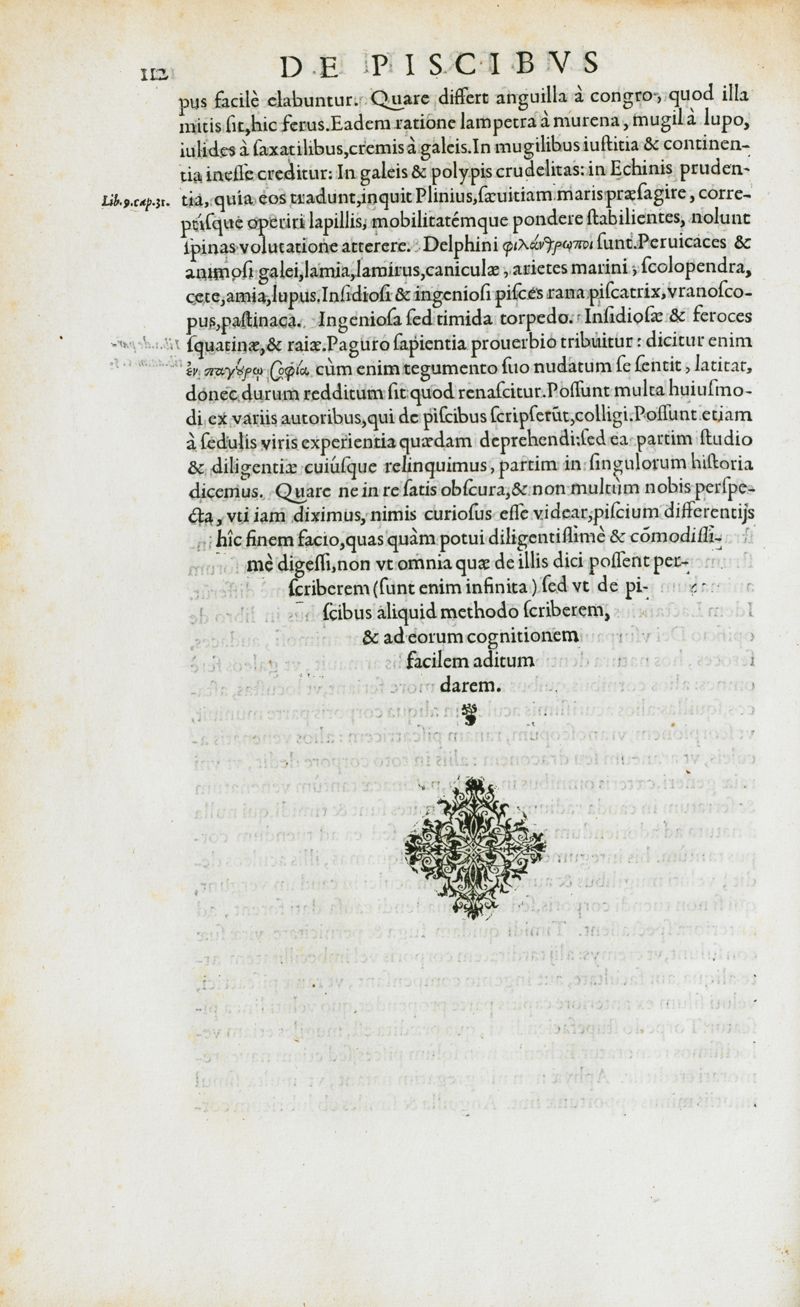 112 DE PISCIBVS
pus facilè elabuntur. Quare differt anguilla à congro, quod illa
mitis ſit,hic ferus.Eadem ratione lampetra à murena, mugil à lupo,
iulides à ſaxatilibus,cremis à galeis.In mugilibus iuſtitia & continen-
tia ineſſe creditur: In galeis & polypis crudelitas: in Echinis pruden-
Lib.9.cap.31. tia, quia eos tradunt,inquit Plinius,ſæuitiam maris præſagire, corre-
ptíſque operiri lapillis, mobilitatémque pondere ſtabilientes, nolunt
ſpinas volutatione atterere. Delphini φιλάνθρωποι ſunt.Peruicaces &
animoſi galei,lamia,lamirus,caniculæ, arietes marini, ſcolopendra,
cete,amia,lupus.Inſidioſi & ingenioſi piſces rana piſcatrix,vranoſco-
pus,paſtinaca. Ingenioſa ſed timida torpedo. Inſidioſæ & feroces
ſquatinæ,& raiæ.Paguro ſapientia prouerbio tribuitur : dicitur enim
ἐν παγύρῳ σοφία, cùm enim tegumento ſuo nudatum ſe ſentit, latitat,
donec durum redditum ſit quod renaſcitur.Poſſunt multa huiuſmo-
di ex variis autoribus,qui de piſcibus ſcripſerūt,colligi.Poſſunt etiam
à ſedulis viris experientia quædam deprehendi:ſed ea partim ſtudio
& diligentiæ cuiúſque relinquimus, partim in ſingulorum hiſtoria
dicemus. Quare ne in re ſatis obſcura,& non multùm nobis perſpe-
cta, vti iam diximus, nimis curioſus eſſe videar,piſcium differentijs
hîc finem facio,quas quàm potui diligentiſſimè & cōmodiſſi-
mè digeſſi,non vt omnia quæ de illis dici poſſent per-
ſcriberem (ſunt enim infinita) ſed vt de pi-
ſcibus aliquid methodo ſcriberem,
& ad eorum cognitionem
facilem aditum
darem.